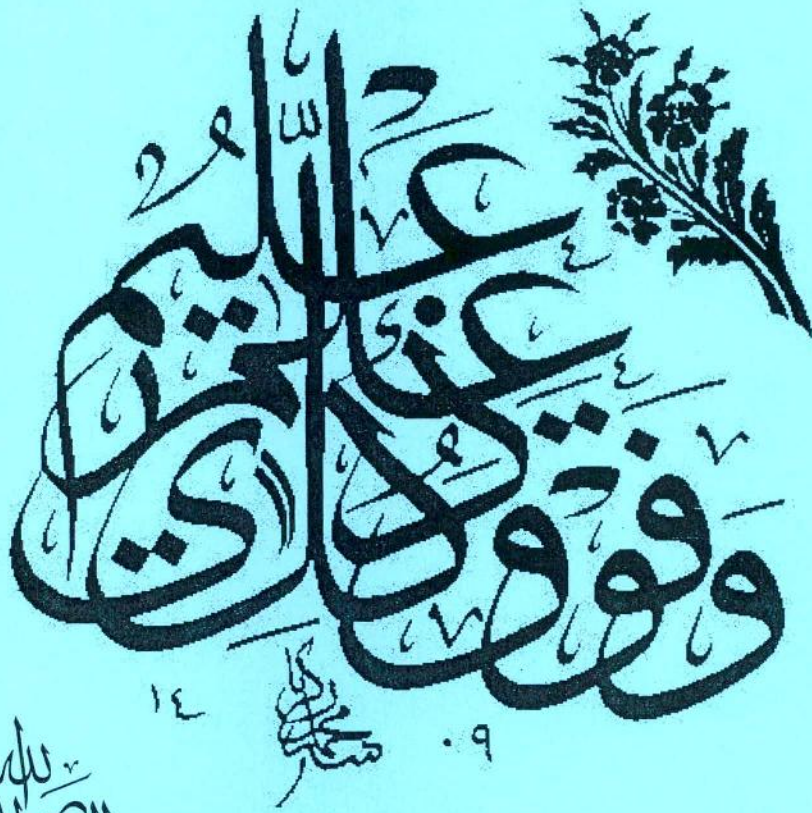 وَفَوْقَ كُلِّ ذِي عِلْمٍ عَلِيمٌ
١٤ ٠٩
لله